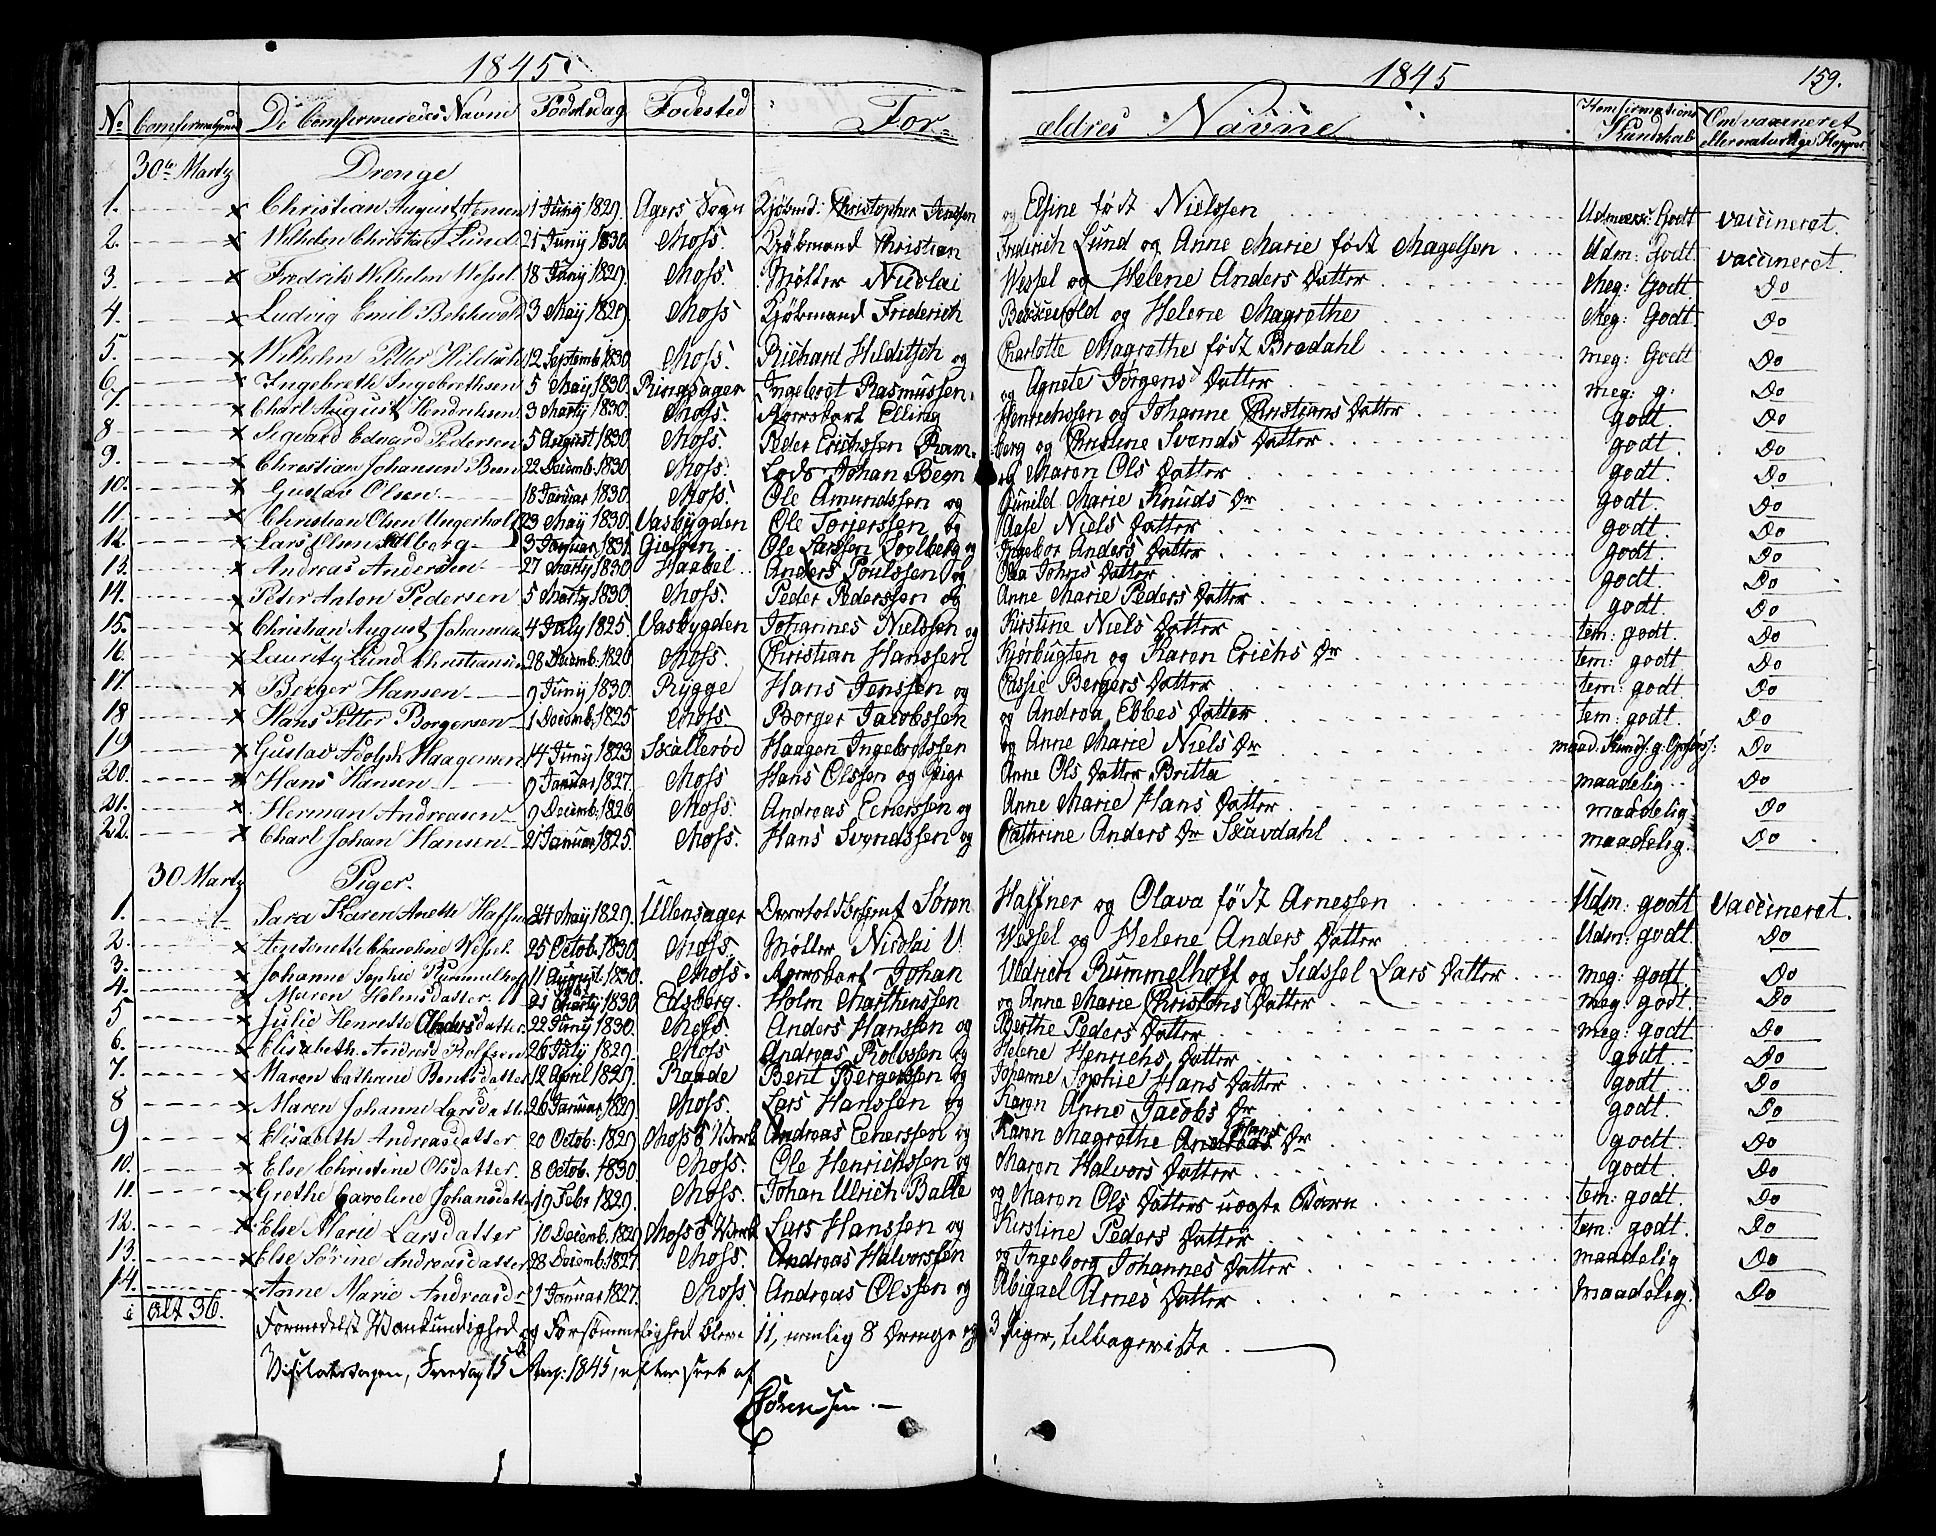 1845 1845 159.
No Confirmations De Confirmeredes Navne Fødselsdag Fødested For- ældres Navne Konfirmations Kundskab Om vaccineret eller naturlige Kopper
30te Martz Drenge
1. Christian August Jensen 1 Juny 1829. Agers Sogn Kjøbmd: Christopher Jenssen og Elsine født Nielssen Udmærk: Godt vaccineret.
2. Wilhelm Christian Lund 21 Juny 1830. Moss. Kjøbmand Christian Frederich Lund og Anne Marie født Magelsen Udm: Godt. vaccineret.
3. Fredrik Wilhelm Wessel 18 Juny 1829. Moss. Møller Nicolai Wessel og Helene Anders Datter Meg: Godt. Do
4. Ludvig Emil Bekkevold 3 May 1829. Moss Kjøbmand Friderich Bekkevold og Helene Magrethe Meg: Godt. Do
5. Wilhelm Petter Hilditch 12 Septemb. 1830. Moss. Richard Hilditsch og Charlotte Magrethe født Bredahl meg: Godt Do
6. Ingebreth Ingebrethsen 5 May 1830. Ringsager Ingebret Rasmussen. og Agnete Jørgens Datter meg: g: Do
7. Charl August Hendriksen 3 Marty 1830. Moss. Elling Henrichssen og Johanne Christians Datter godt. Do
8. Sigvard Eduard Pedersen 5 August 1830. Moss. Peder Erichssen Dram- berg og Christine Svends Datter godt. Do
9. Christian Johansen Been 22 Decemb. 1830. Moss. Lods Johan Begn og Maren Ols Datter godt. Do
10. Gustav Olsen 18 Januar 1830. Moss. Ole Amundssen og Gunild Marie Knuds Dr godt. Do
11. Christian Olsen Ungerholt 23 May 1830. Vasbygden Ole Torjerssen og Aase Niels Datter godt. Do
12. Lars Olsen Solberg 3 Januar 1831. Ole Larssen Soelberg og Ingebor Anders Datter godt. Do
13. Andreas Andersen 27 Marty 1830. Haabel Anders Poulssen og Olea Johns Datter godt. Do
14. Peter Anton Pedersen 5 Marty 1830. Moss. Peder Pederssen og Anne Marie Peders Datter godt. Do
15. Christian August Johannesen 4 July 1825. Vasbygden Johannes Nielssen og Kirstine Niels Datter tem: godt. Do
16. Lauritz Lund Christiansen 28 Decemb: 1826 Moss. Christian Hanssen Kjørbugten og Karen Erichs Dr tem: godt. Do
17. Berger Hansen 9 Juny 1830. Rygge Hans Jenssen og Cassie Bergers Datter tem: godt. Do
18 Hans Petter Borgersen 1 Decemb: 1825 Moss Borger Jacobssen og Andrea Ebbes Datter tem: godt. Do
19 Gustav Adolph Haagensen 14 Juny 1823 Skallerød Haagen Ingebretssen og Anne Marie Niels Dr maad. Kunds: g: Opførs: Do
20. Hans Hansen 9 Januar 1827. Moss Hans Olssen og Pige Anne Ols Datter Britta maadelig Do
21. Herman Andreasen 9 Decemb: 1826 Moss. Andreas Eenerssen og Anne Marie Hans Datter maadelig Do
22. Charl Johan Hansen 21 Januar 1825. Moss. Hans Svendssen og Cathrine Anders Dr Skavdahl maadelig. Do
30 Martz Piger.
1. Sara Karen Anette Haffner 24 May 1829. Ullensager Søren Haffner og Olava født Arnessen Udm: godt vaccineret.
2. Antonette Charoline Wessel. 25 Octob. 1830. Moss. Møller Nicolai V. Wessel og Helene Anders Datter Udm: godt Do
3. Johanne Sophie Rummelhoff 11 August 1830. Moss. Johan Uldrich Rummelhoff og Sidssel Lars Datter meg: godt Do
4. Maren Holmsdatter 21 Marty 1830 Edsberg. Holm Marthinssen og Anne Marie Christens Datter meg: godt. Do
5 Julie Henrette Andersdatter 22 Juny 1830. Moss. Anders Hanssen og Berthe Peders Datter meg: godt Do
6. Elisabeth Andrea Rolfsen 26 July 1829. Moss Andreas Rolvssen og Helene Henrichs Datter godt Do
7. Maren Cathrine Bentsdatter 12 April 1829. Raade Bent Bergerssen og Johanne Sophie Hans Datter godt. Do
8 Maren Johanne Larsdatter 26 Januar 1829. Moss. Lars Hanssen og Karen Anne Jacobs Dr godt. Do
9 Elisabeth Andreasdatter 20 Octob: 1829 Moss Werk Andreas Eenerssen og Karen Magrethe Andreas Dr godt. Do
10. Else Christine Olsdatter. 8 Octob. 1830. Moss. Ole Henrichssen og Maren Halvors Datter godt. Do
11. Grethe Caroline Johansdatter 19 Febr 1829. Moss. Johan Ulrich Balle og Maren Ols Datters uægte Barn tem: godt. Do
12. Else Marie Larsdatter 10 Decemb. 1829 Moss Werk Lars Hanssen og Kirstine Peders Datter tem: godt. Do
13. Else Sørine Andreasdatter 28 Decemb: 1827. Moss. Andreas Halvorssen og Ingeborg Johannes Datter maadelig Do
14. Anne Marie Andreasdr 9 Januar 1827. Moss. Andreas Olssen og Abigael Arnes Datter maadelig. Do
i alt 36.
Formedelst Vankundighed og Forsømmelighed bleve 11, nemlig 8 Drenge og 3 Piger, tilbageviste.
Fredag 15 1845, af
Sørensen.